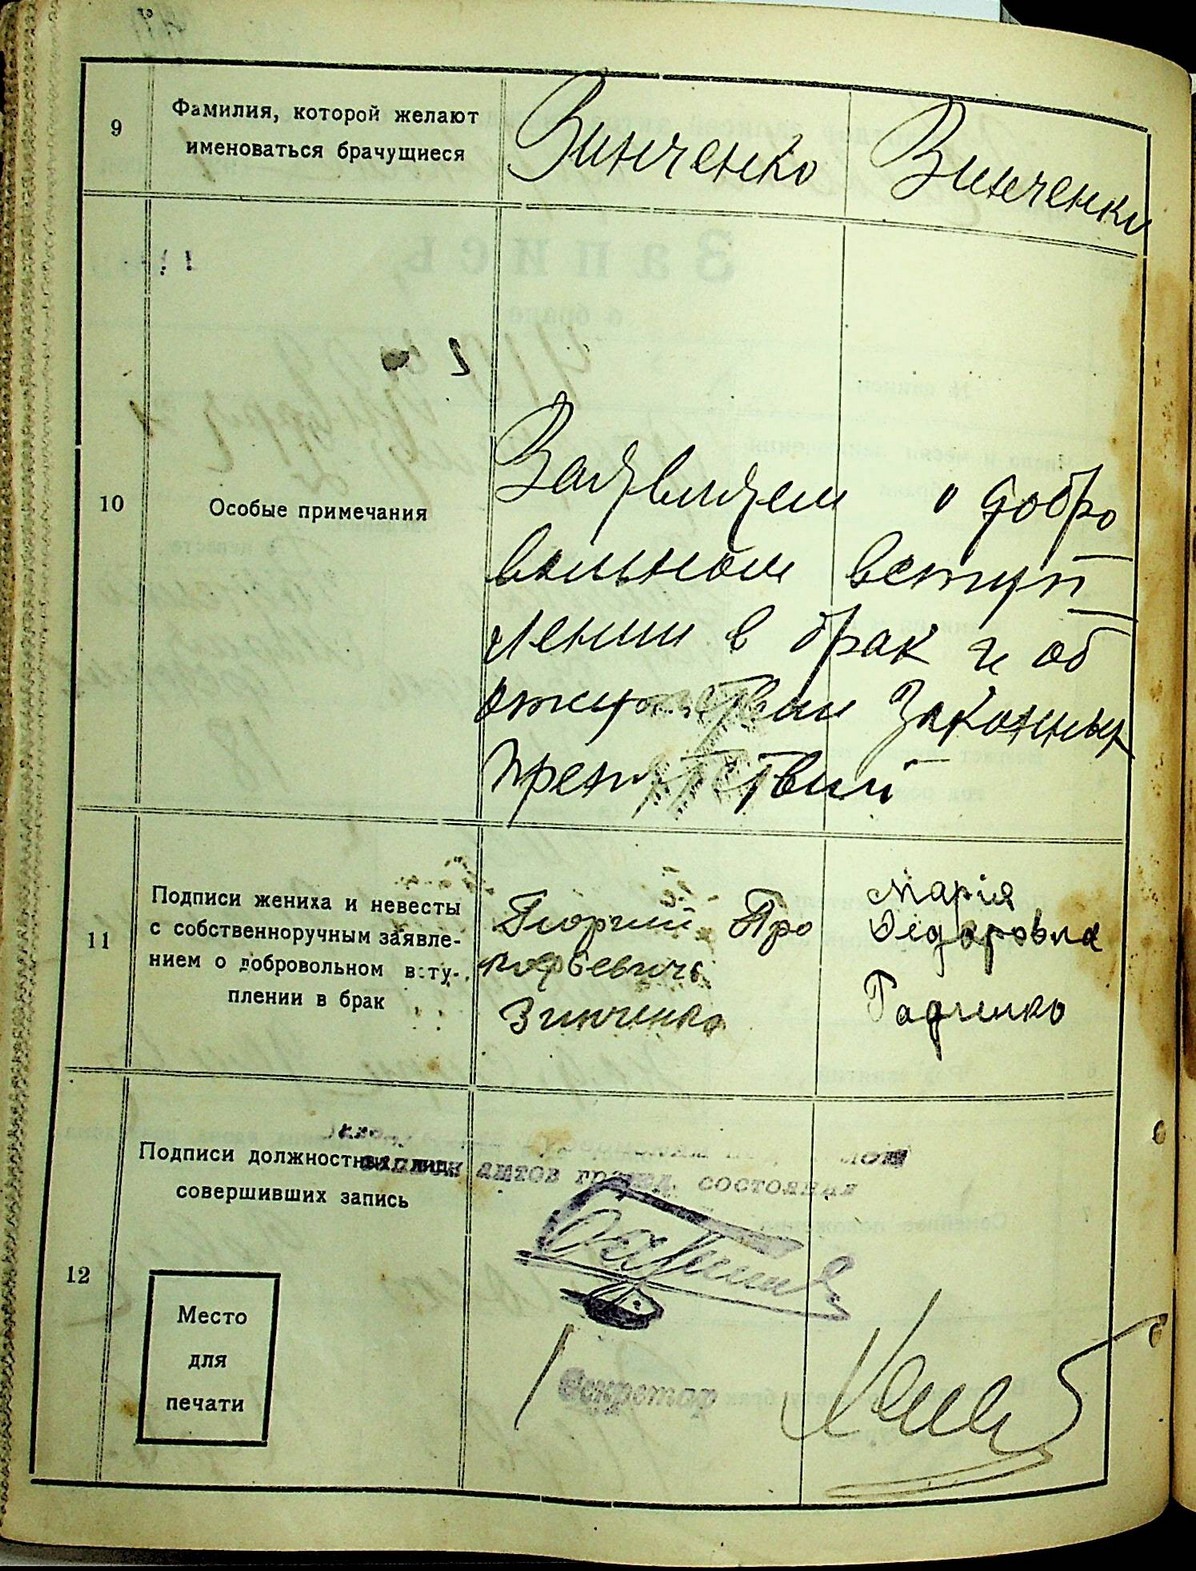 9
Фамилия, которой желают
именоваться брачущиеся
Зинченко
Зинченко
10
Особые примечания
Заявляем о добро
вольном вступ
лении в брак и об
отсутствии законных
препятствий
11
Подписи жениха и невесты
с собственноручным заявле-
нием о добровольном всту-
плении в брак
Георгий Про
кофьевичъ
Зинченко
Марія
Федоровна
Радченко
12
Подписи должностных лиц,
совершивших запись
записи актов гражд. состояния
Секретар
Место
для
печати